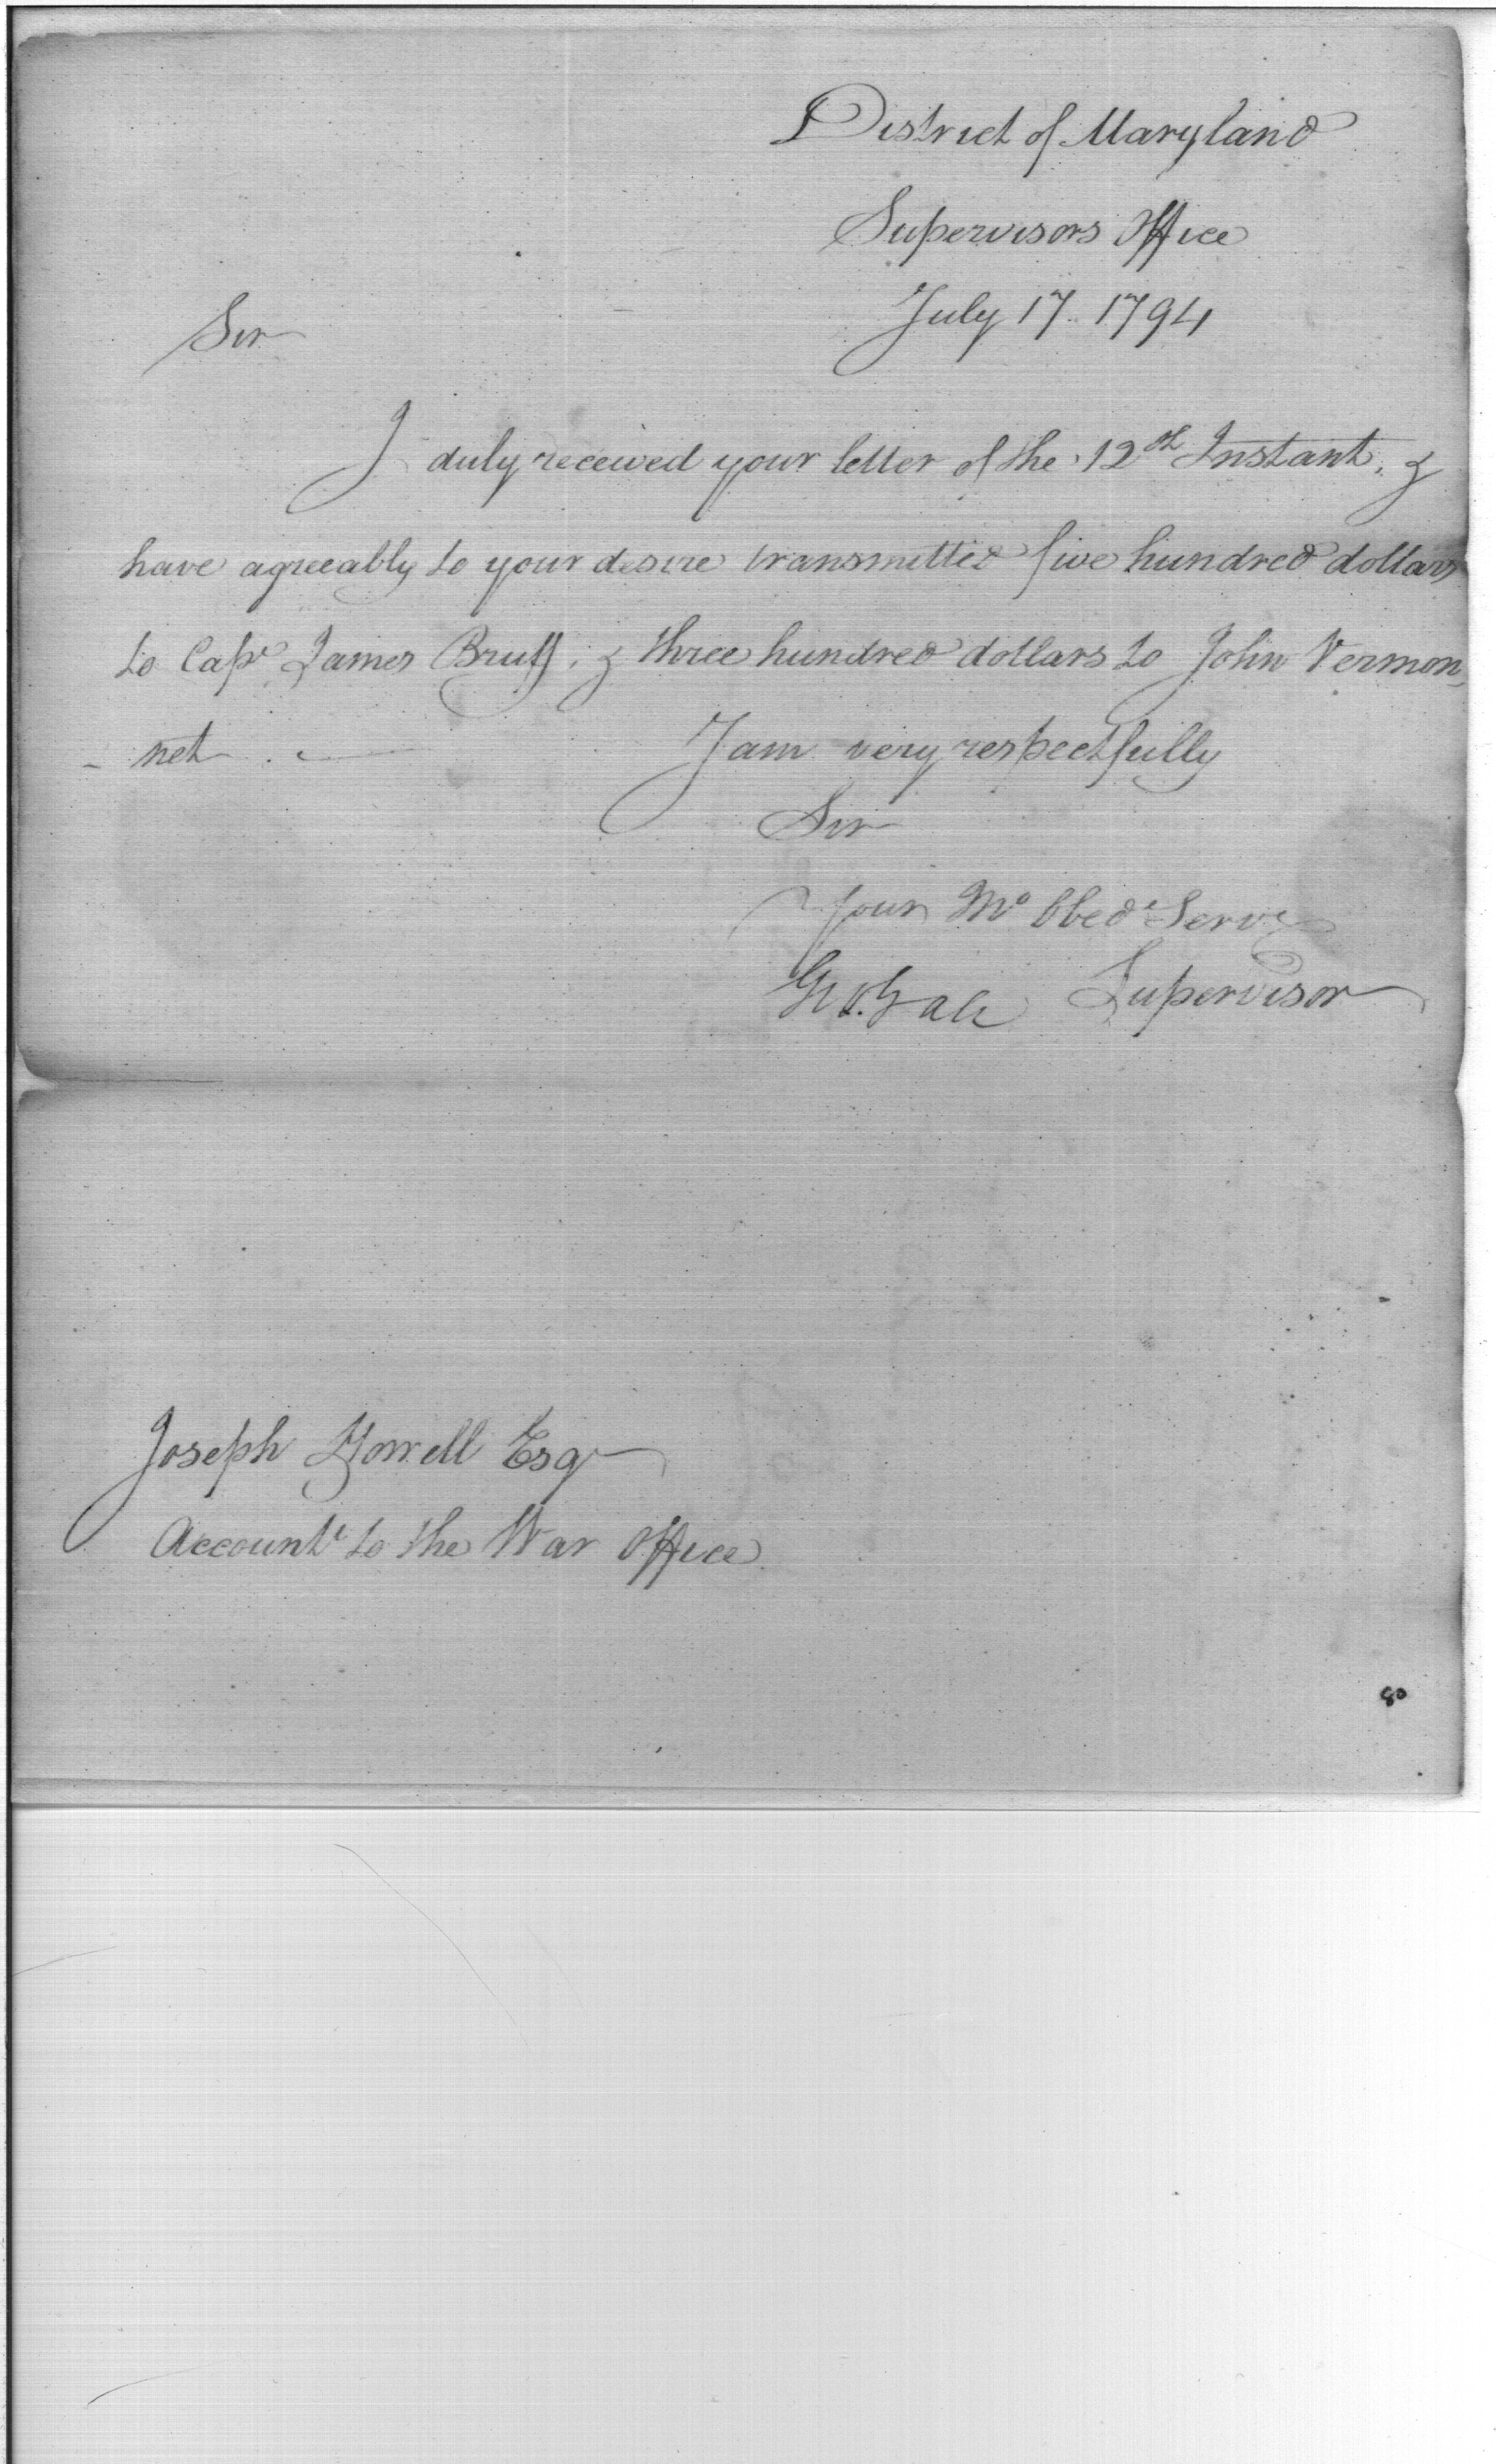 District of Maryland
Supervisors Office
July 17. 1794
Sir
I duly received your letter of the 12th Instant, &
have agreeably to your desire transmitted five hundred dollars
to Capt James Bruff, & three hundred dollars to John Vermon-
- net.
I am very respectfully
Sir
Your Mo Obedt Servt
Geo. Gale Supervisor
Joseph Howell Esqr
Accountt to the War Office
80